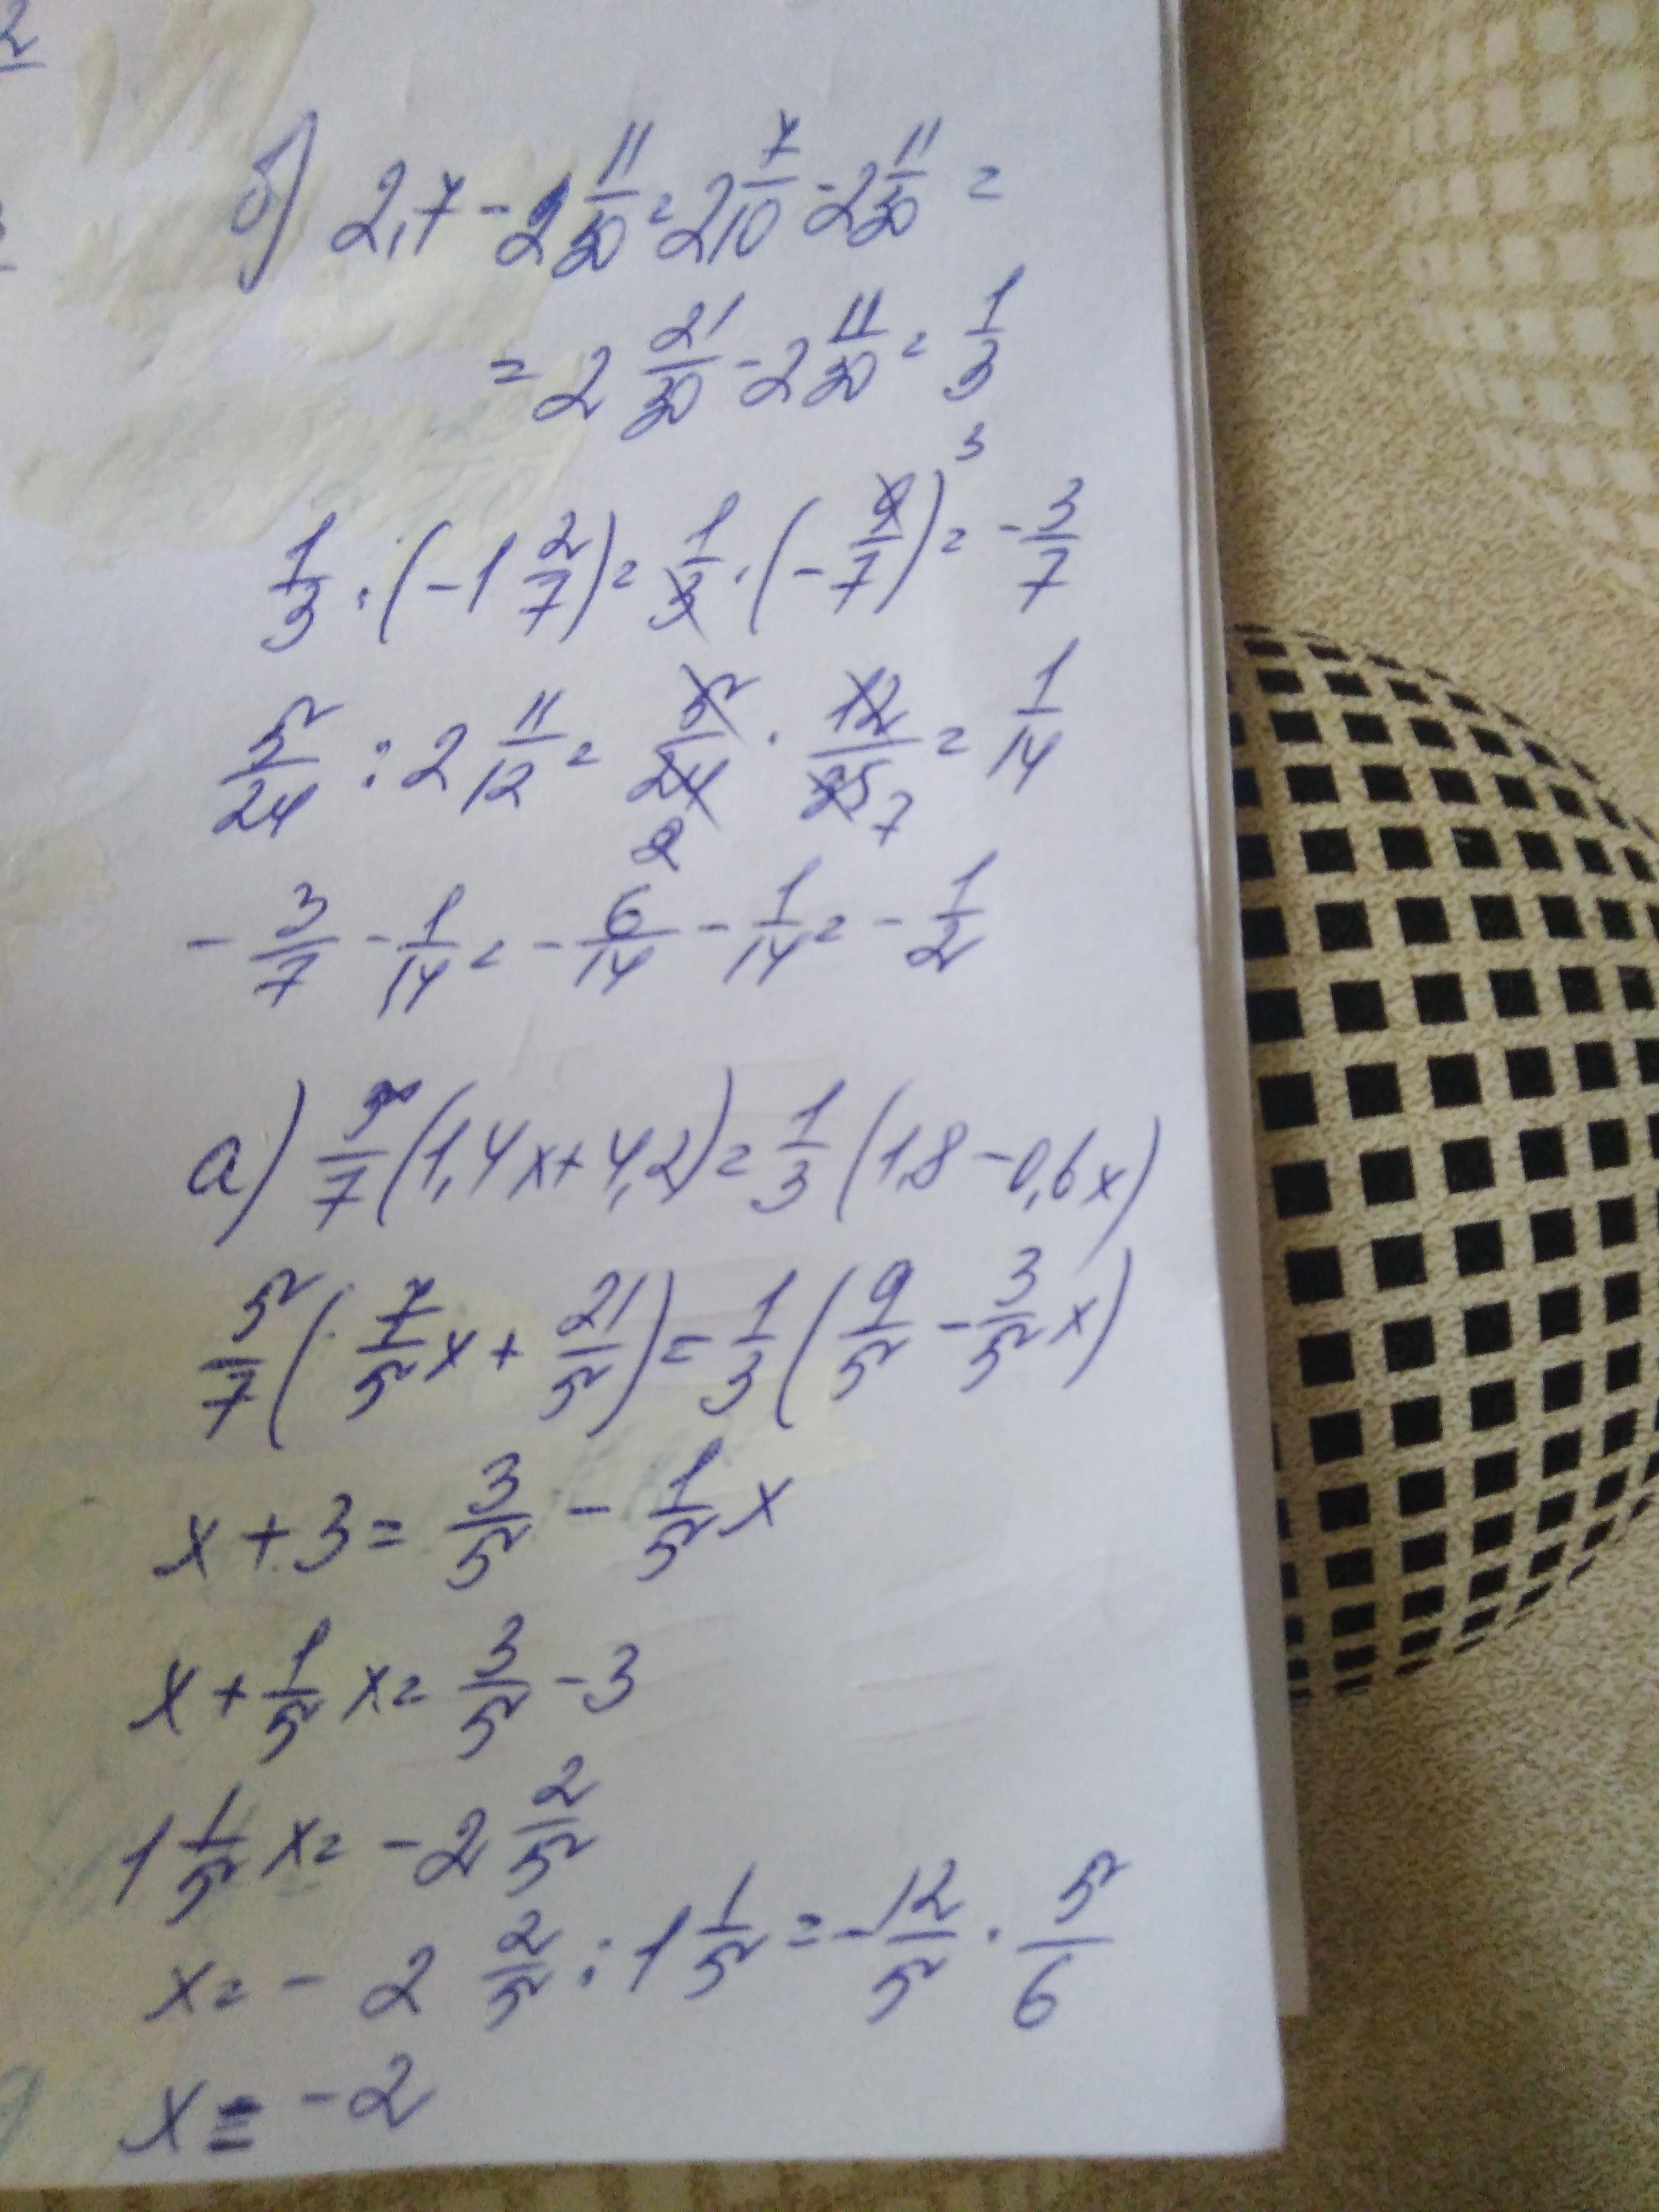 б) 2,7 - 2 11/30 = 2 7/10 - 2 11/30 =
= 2 21/30 - 2 11/30 = 1/3
1/3 · (-1 2/7) = 1/3 · (-9/7) 3 = -3/7
5/24 : 2 11/12 = 5/24 2 · 12/35 7 = 1/14
-3/7 - 1/14 = -6/14 - 1/14 = -1/2
а) 5/7 (1,4x + 4,2) = 1/3 (1,8 - 0,6x)
5/7 (7/5 x + 21/5) = 1/3 (9/5 - 3/5 x)
x + 3 = 3/5 - 1/5 x
x + 1/5 x = 3/5 - 3
1 1/5 x = -2 2/5
x = -2 2/5 : 1 1/5 = -12/5 · 5/6
x = -2